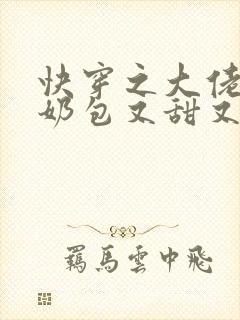 快穿之大佬
奶包又甜又
羁馬雲中飛